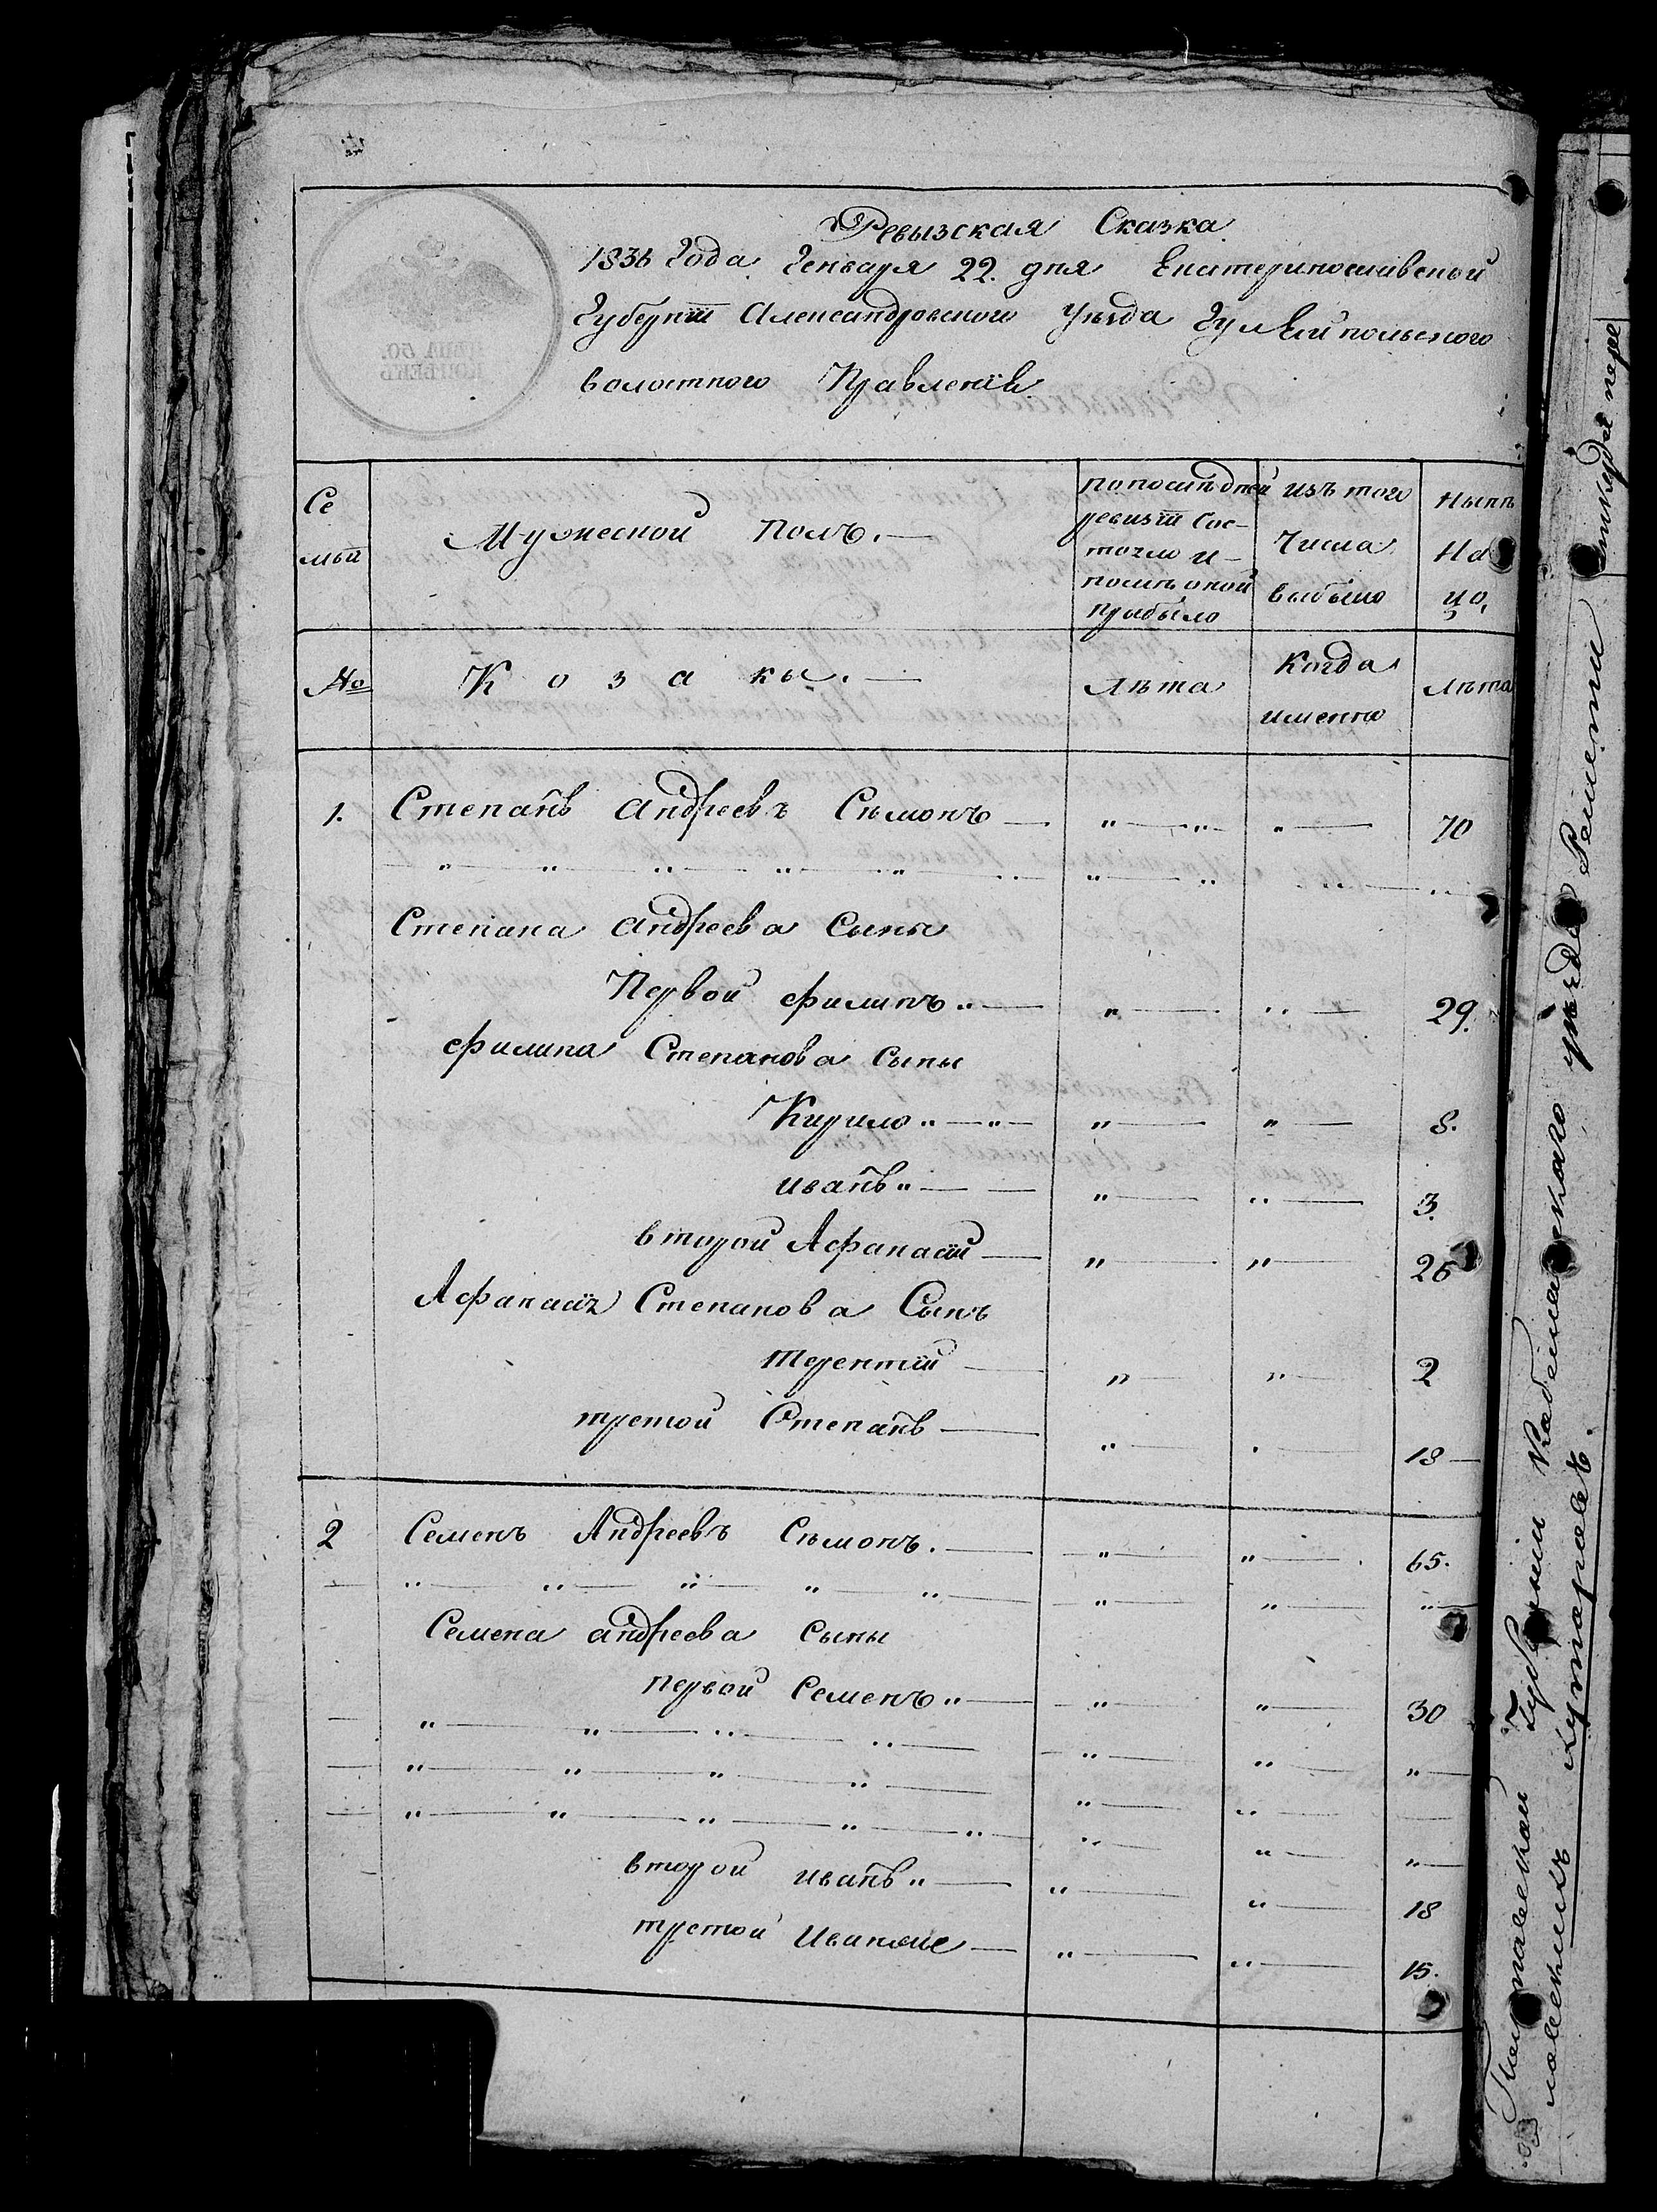 Ревызская Сказка
1836 Года Генваря 22. дня Екатеринославской
Губернїи Александровского Уѣзда Гуляйпольского
волостного Правленїя
Се
мьи
Мужеской Полъ.—
по последней
ревизїи Сос-
тояло и-
послѣ оной
прибыло
изъ того
Числа
выбыло
Нынѣ
На
ЦО,
№
Козакы.—
Лѣта
Когда
именно
Лѣта
1. Степанъ андреевъ Сѣмонъ — „ — „ „ — 70
„ — „ — „ — „ — „ „ — „ „ — „
Степана андреева Сыны
Первой филипъ „ — „ — „ — 29.
филипа Степанова Сыны
Кирило „ — „ — „ — „ — 8.
иванъ „ — — „ — „ — 3.
второй Афанасїй — „ — „ — 26
Афанасїя Степанова Сынъ
Терентїй — „ — „ — 2
третой Степанъ — „ — „ — 18 —
2 Семенъ Андреевъ Сѣмонъ. — „ — „ — 65.
— „ — „ — „ — „ — „ — „ — „ — „ —
Семена андреева Сыны
первой Семенъ „ — „ — „ — 30
— „ — „ — „ — „ — „ — „ — „ —
— „ — „ — „ — „ — „ — „ — —
— „ — „ — „ — „ — „ — „ — „ — „ —
второй иванъ „ — „ — „ — 18
третой Иванже — „ — „ — 15.
ЦѢНА 50.
КОПѢЕКЪ
Полтавской Губернїи Кобеляцкаго уѣзда Решети
ловскихъ хуторовъ.
откуда пере